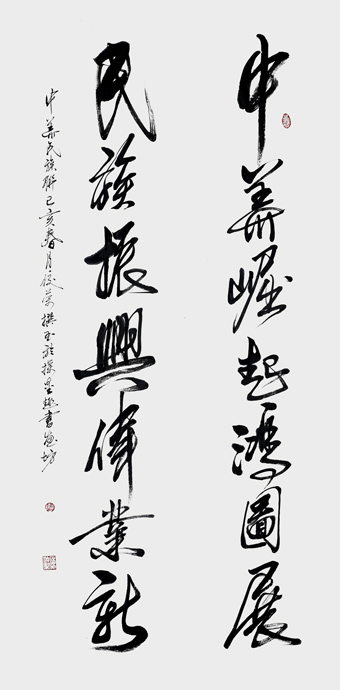 中華崛起鴻圖展
民族振興偉業新
中華民族聯己亥春月俊榮撰